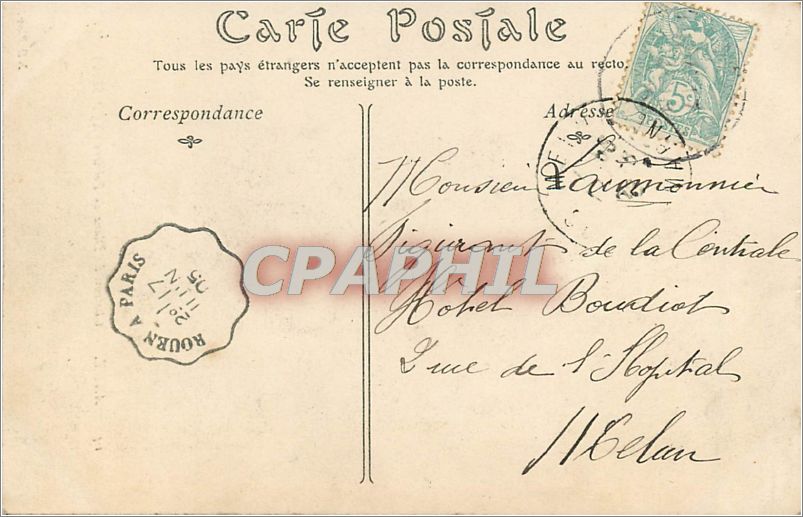 Carte Postale
Tous les pays étrangers n'acceptent pas la correspondance au recto.
Se renseigner à la poste.
Correspondance
Adresse
5c
Monsieur Laumonnier
de la Centrale
Hôtel Boudiot
2 rue de l'Hopital
Melun
ROUEN A PARIS
2°
11 JUIN
05
CPAPHIL